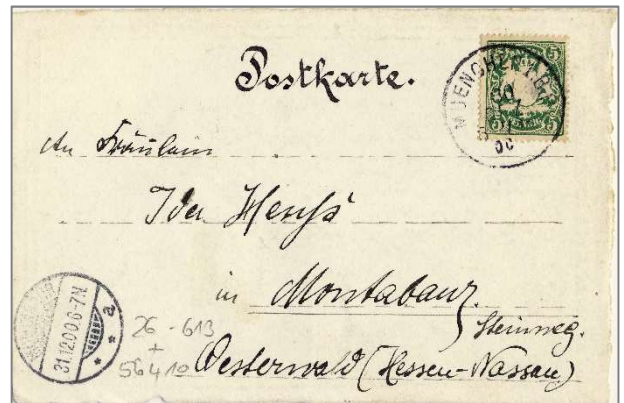 Postkarte.
MUENCHEN
00
5
An Fräulein
Ida
in Montabaur.
Steinweg.
Westerwald (Hessen-Nassau)
31.12.00.6-7N.
a
26 - 613
+
56410